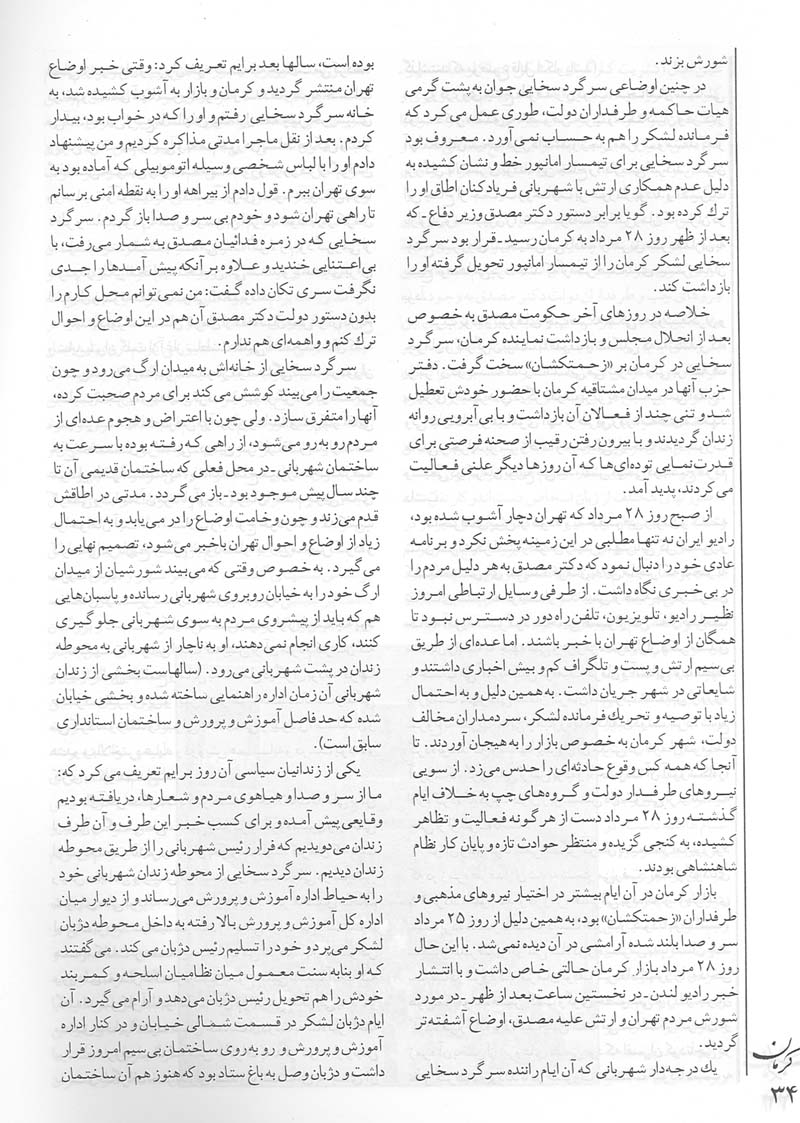 شورش بزند.
در چنین اوضاعی سرگرد سخایی جوان به پشت گرمی
هیات حاکمه و طرفداران دولت، طوری عمل می‌کرد که
فرمانده لشکر را هم به حساب نمی‌آورد. معروف بود
سرگرد سخایی برای تیمسار امانپور خط و نشان کشیده به
دلیل عدم همکاری ارتش با شهربانی فریادکنان اطاق او را
ترك کرده بود. گویا برابر دستور دکتر مصدق وزیر دفاع ـ که
بعد از ظهر روز ۲۸ مرداد به کرمان رسید ـ قرار بود سرگرد
سخایی لشکر کرمان را از تیمسار امانپور تحویل گرفته او را
بازداشت کند.
خلاصه در روزهای آخر حکومت مصدق به خصوص
بعد از انحلال مجلس و بازداشت نماینده کرمان، سرگرد
سخایی در کرمان بر «زحمتکشان» سخت گرفت. دفتر
حزب آنها در میدان مشتاقیه کرمان با حضور خودش تعطیل
شد و تنی چند از فعالان آن بازداشت و با بی‌آبرویی روانه
زندان گردیدند و با بیرون رفتن رقیب از صحنه فرصتی برای
قدرت‌نمایی توده‌ای‌ها که آن روزها دیگر علنی فعالیت
می‌کردند، پدید آمد.
از صبح روز ۲۸ مرداد که تهران دچار آشوب شده بود،
رادیو ایران نه تنها مطلبی در این زمینه پخش نکرد و برنامه
عادی خود را دنبال نمود که دکتر مصدق به هر دلیل مردم را
در بی‌خبری نگاه داشت. از طرفی وسایل ارتباطی امروز
نظیر رادیو، تلویزیون، تلفن راه دور در دسترس نبود تا
همگان از اوضاع تهران با خبر باشند. اما عده‌ای از طریق
بی‌سیم ارتش و پست و تلگراف کم و بیش اخباری داشتند و
شایعاتی در شهر جریان داشت. به همین دلیل و به احتمال
زیاد با توصیه و تحریك فرمانده لشکر، سردمداران مخالف
دولت، شهر کرمان به خصوص بازار را به هیجان آوردند. تا
آنجا که همه کس وقوع حادثه‌ای را حدس می‌زد. از سویی
نیروهای طرفدار دولت و گروه‌های چپ به خلاف ایام
گذشته روز ۲۸ مرداد دست از هرگونه فعالیت و تظاهر
کشیده، به کنجی گزیده و منتظر حوادث تازه و پایان کار نظام
شاهنشاهی بودند.
بازار کرمان در آن ایام بیشتر در اختیار نیروهای مذهبی و
طرفداران «زحمتکشان» بود، به همین دلیل از روز ۲۵ مرداد
سر و صدا بلند شده آرامشی در آن دیده نمی‌شد. با این حال
روز ۲۸ مرداد بازار کرمان حالتی خاص داشت و با انتشار
خبر رادیو لندن ـ در نخستین ساعت بعد از ظهر ـ در مورد
شورش مردم تهران و ارتش علیه مصدق، اوضاع آشفته‌تر
گردید.
یك درجه‌دار شهربانی که آن ایام راننده سرگرد سخایی
بوده است، سالها بعد برایم تعریف کرد: وقتی خبر اوضاع
تهران منتشر گردید و کرمان و بازار به آشوب کشیده شد، به
خانه سرگرد سخایی رفتم و او را که در خواب بود، بیدار
کردم. بعد از نقل ماجرا مدتی مذاکره کردیم و من پیشنهاد
دادم او را با لباس شخصی وسیله اتوموبیلی که آماده بود به
سوی تهران ببرم. قول دادم از بیراهه او را به نقطه امنی برسانم
تا راهی تهران شود و خودم بی سر و صدا بازگردم. سرگرد
سخایی که در زمره فدائیان مصدق به شمار می‌رفت، با
بی‌اعتنایی خندید و علاوه بر آنکه پیش آمدها را جدی
نگرفت سری تکان داده گفت: من نمی‌توانم محل کارم را
بدون دستور دولت دکتر مصدق آن هم در این اوضاع و احوال
ترك کنم و واهمه‌ای هم ندارم.
سرگرد سخایی از خانه‌اش به میدان ارگ می‌رود و چون
جمعیت را می‌بیند کوشش می‌کند برای مردم صحبت کرده،
آنها را متفرق سازد. ولی چون با اعتراض و هجوم عده‌ای از
مردم رو به رو می‌شود، از راهی که رفته بوده با سرعت به
ساختمان شهربانی ـ در محل فعلی که ساختمان قدیمی آن تا
چند سال پیش موجود بود ـ باز می‌گردد. مدتی در اطاقش
قدم می‌زند و چون وخامت اوضاع را در می‌یابد و به احتمال
زیاد از اوضاع و احوال تهران باخبر می‌شود، تصمیم نهایی را
می‌گیرد. به خصوص وقتی که می‌بیند شورشیان از میدان
ارگ خود را به خیابان روبروی شهربانی رسانده و پاسبان‌هایی
هم که باید از پیشروی مردم به سوی شهربانی جلوگیری
کنند، کاری انجام نمی‌دهند، او به ناچار از شهربانی به محوطه
زندان در پشت شهربانی می‌رود. (سالهاست بخشی از زندان
شهربانی آن زمان اداره راهنمایی ساخته شده و بخشی خیابان
شده که حد فاصل آموزش و پرورش و ساختمان استانداری
سابق است).
یکی از زندانیان سیاسی آن روز برایم تعریف می‌کرد که:
ما از سر و صدا و هیاهوی مردم و شعارها، دریافته بودیم
وقایعی پیش آمده و برای کسب خبر این طرف و آن طرف
زندان می‌دویدیم که فرار رئیس شهربانی را از طریق محوطه
زندان دیدیم. سرگرد سخایی از محوطه زندان شهربانی خود
را به حیاط اداره آموزش و پرورش می‌رساند و از دیوار میان
اداره کل آموزش و پرورش بالا رفته به داخل محوطه دژبان
لشکر می‌پرد و خود را تسلیم رئیس دژبان می‌کند. می‌گفتند
که او بنابه سنت معمول میان نظامیان اسلحه و کمربند
خودش را هم تحویل رئیس دژبان می‌دهد و آرام می‌گیرد. آن
ایام دژبان لشکر در قسمت شمالی خیابان و در کنار اداره
آموزش و پرورش و رو به روی ساختمان بی‌سیم امروز قرار
داشت و دژبان وصل به باغ ستاد بود که هنوز هم آن ساختمان
کرمان
۳۴